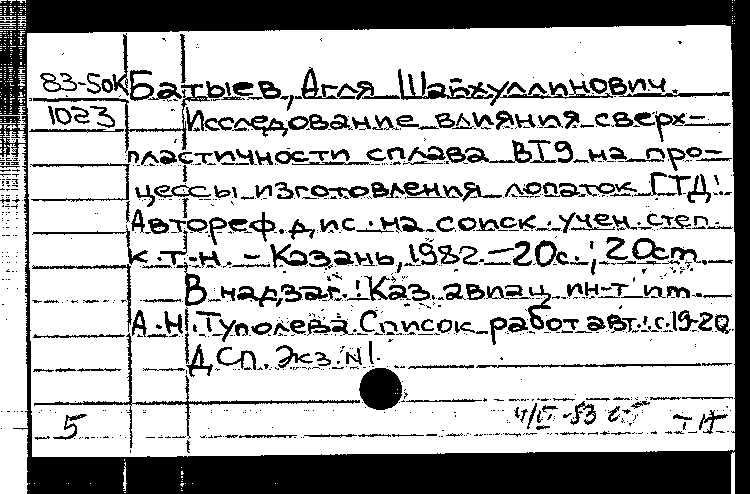 83-50К Батыев, Агля Шайхуллинович.
1023 Исследование влияния сверх-
пластичности сплава ВТ9 на про-
цессы изготовления лопаток ГТД:
Автореф. дис. на соиск. учен. степ.
к.т.н. - Казань, 1982. - 20с.; 20см.
В надзаг.: Каз. авиац. ин-т им.
А.Н. Туполева. Список работ авт.: с.19-20
ДСП. Экз. N1.
5